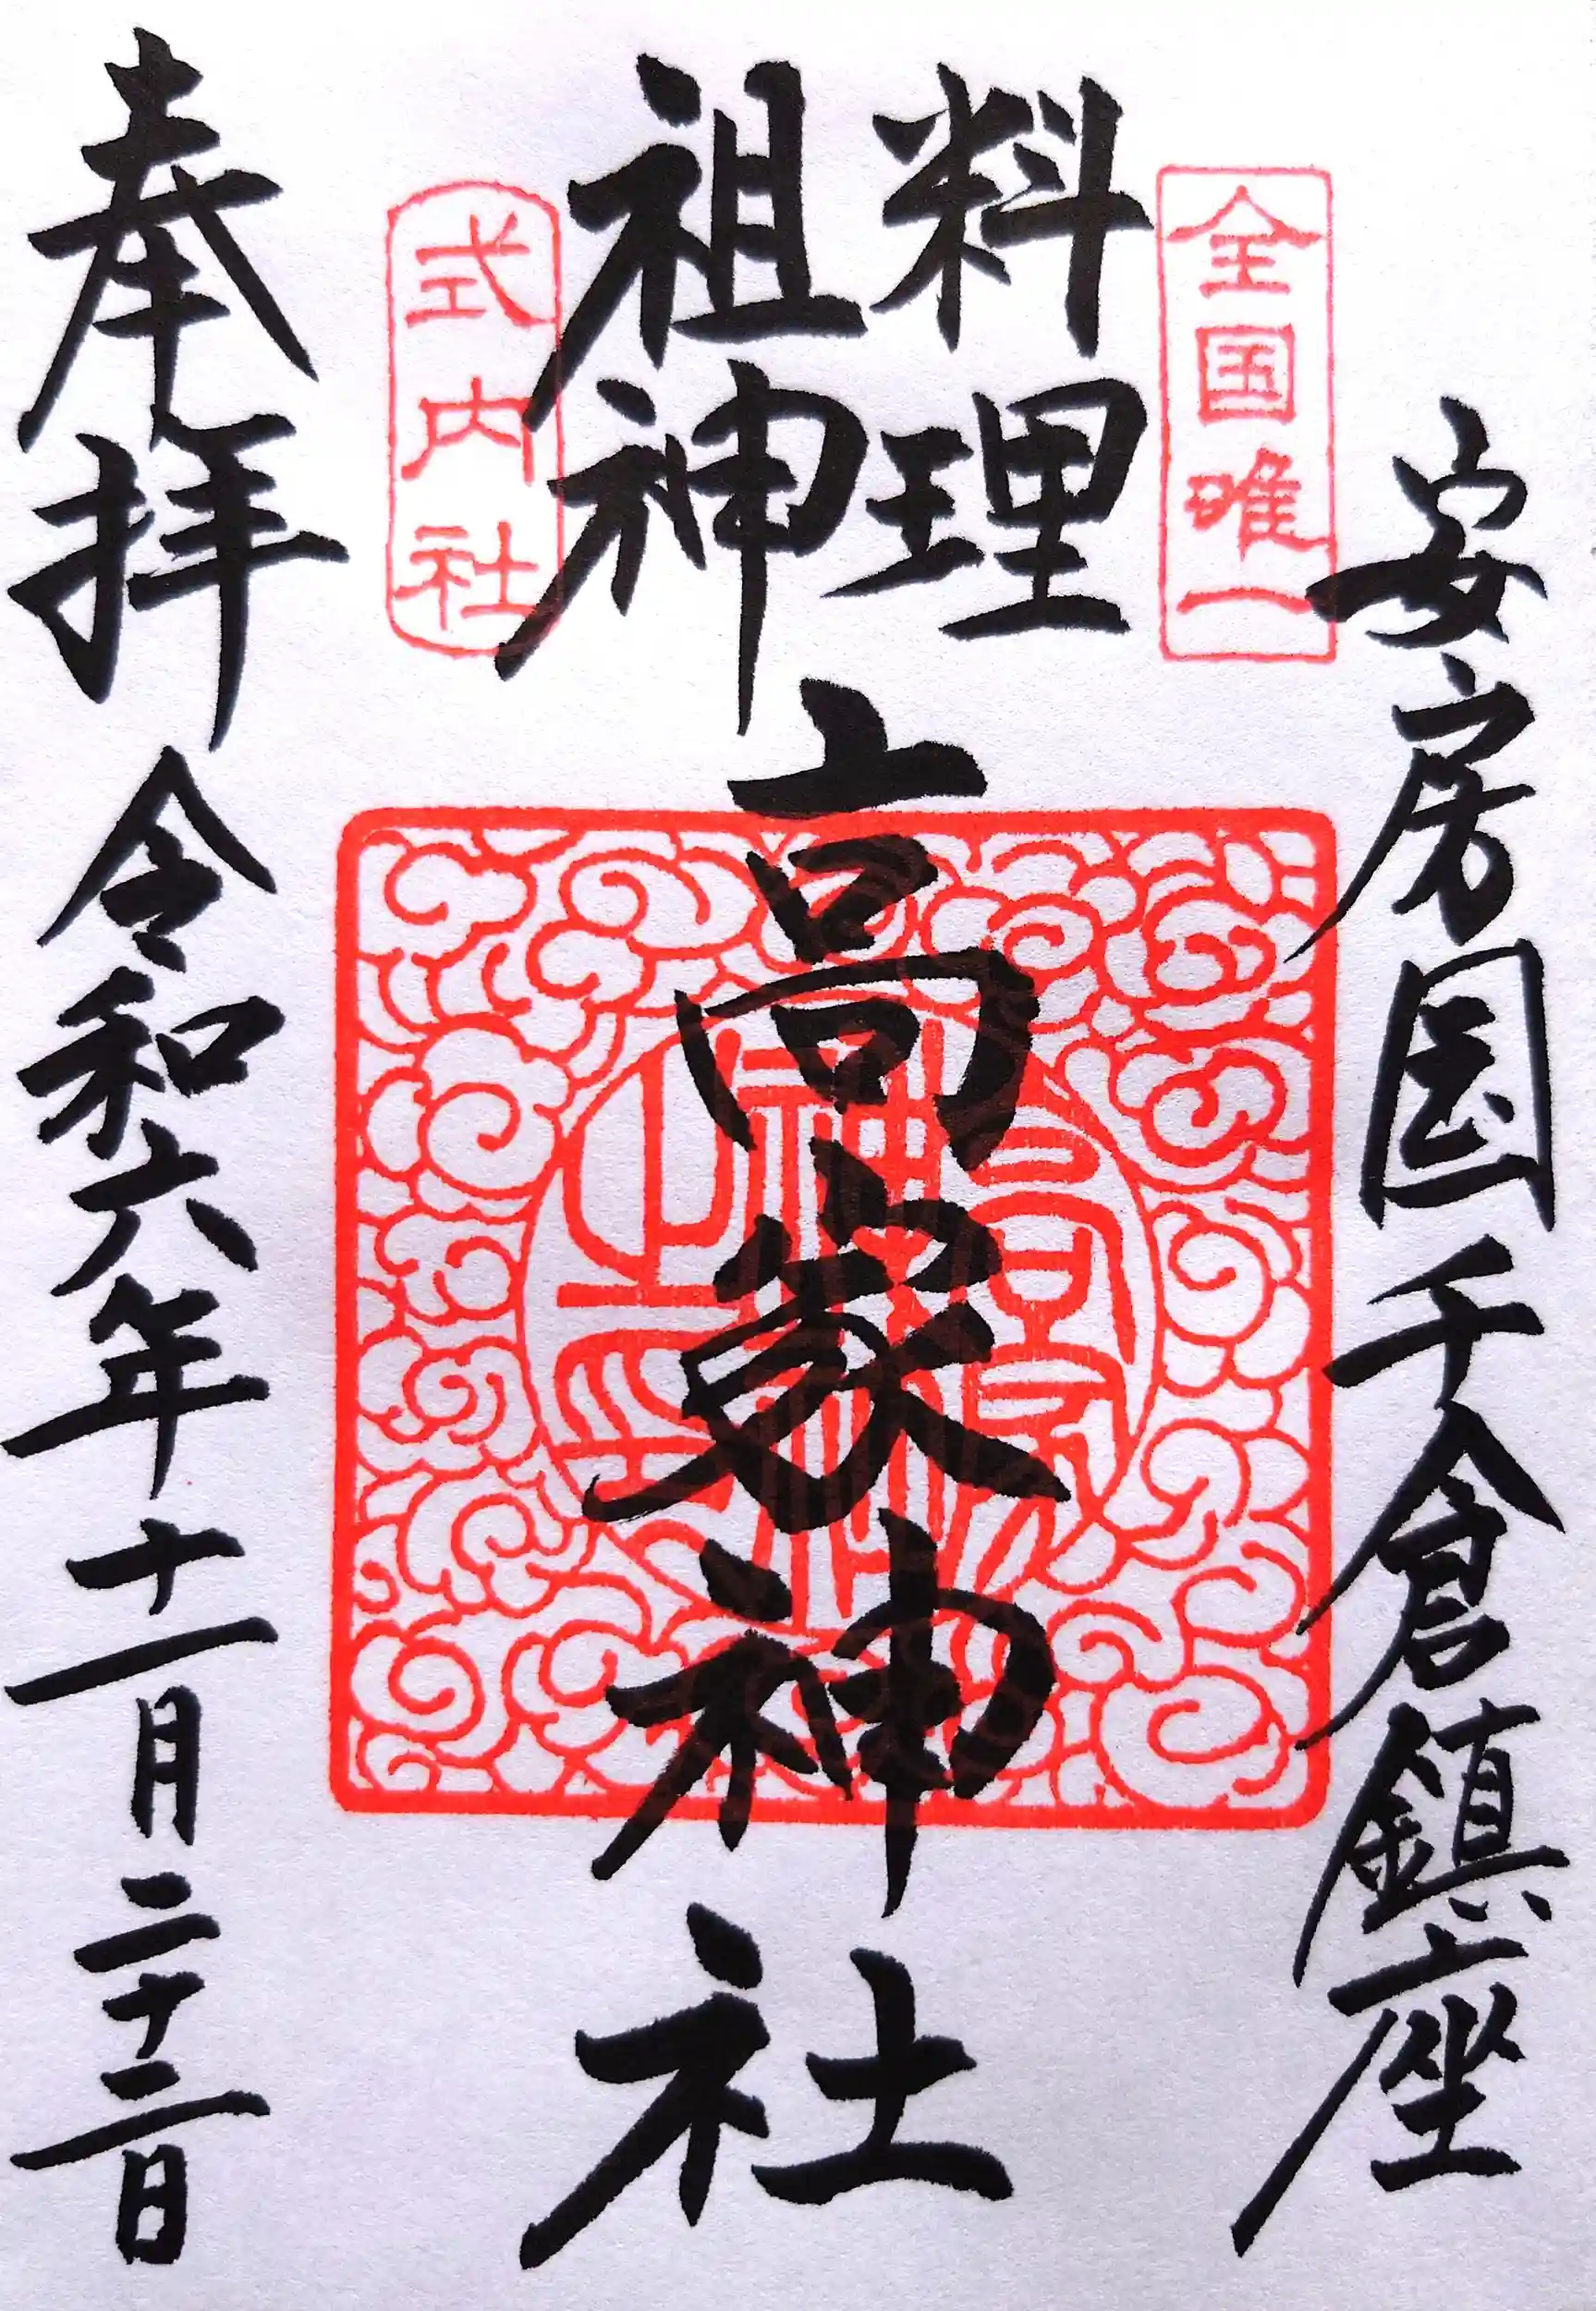 安房国千倉鎮座
全国唯一
料理
祖神
高家神社
式内社
奉拝 令和六年十一月二十三日